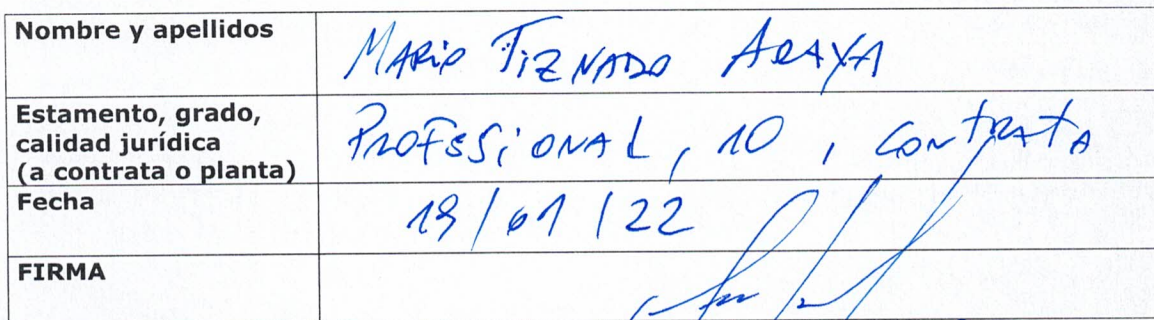 Nombre y apellidos
MARIO TIZNADO ARAYA
Estamento, grado,
calidad jurídica
(a contrata o planta)
PROFESSiONAL, 10, CONTRATA
Fecha
19/01/22
FIRMA